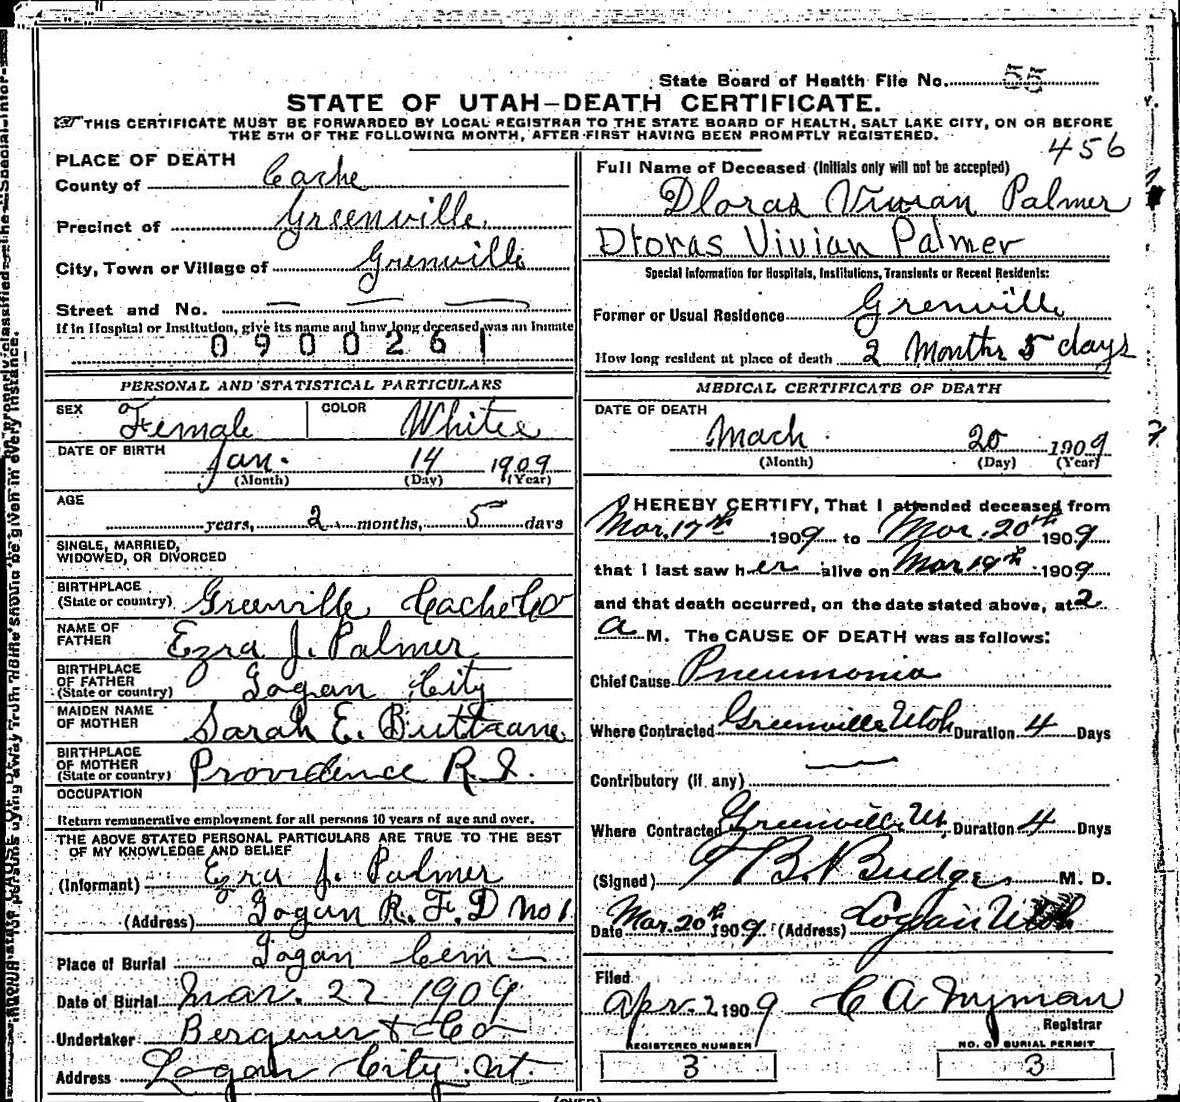 State Board of Health File No. 55
STATE OF UTAH-DEATH CERTIFICATE.
THIS CERTIFICATE MUST BE FORWARDED BY LOCAL REGISTRAR TO THE STATE BOARD OF HEALTH, SALT LAKE CITY, ON OR BEFORE
THE 5TH OF THE FOLLOWING MONTH, AFTER FIRST HAVING BEEN PROMPTLY REGISTERED.
456
PLACE OF DEATH
County of Cache
Precinct of Greenville
City, Town or Village of Grenville
Street and No. — — —
If in Hospital or Institution, give its name and how long deceased was an inmate
0900261
PERSONAL AND STATISTICAL PARTICULARS
SEX Female COLOR White
DATE OF BIRTH Jan. 14 1909
(Month) (Day) (Year)
AGE
years, 2 months, 5 days
SINGLE, MARRIED,
WIDOWED, OR DIVORCED
BIRTHPLACE
(State or country) Greenville Cache Co
NAME OF
FATHER Ezra J. Palmer
BIRTHPLACE
OF FATHER
(State or country) Logan City
MAIDEN NAME
OF MOTHER Sarah E.
BIRTHPLACE
OF MOTHER
(State or country) Providence R.I.
OCCUPATION
Return remunerative employment for all persons 10 years of age and over.
THE ABOVE STATED PERSONAL PARTICULARS ARE TRUE TO THE BEST
OF MY KNOWLEDGE AND BELIEF
(Informant) Ezra J. Palmer
(Address) Logan R.F.D No 1.
Place of Burial Logan Cem
Date of Burial Mar. 22 1909
Undertaker & Co
Address Logan City. Ut.
Full Name of Deceased (Initials only will not be accepted)
Dloras Vivian Palmer
Dloras Vivian Palmer
Special Information for Hospitals, Institutions, Transients or Recent Residents:
Former or Usual Residence Grenville
How long resident at place of death 2 Months 5 days
MEDICAL CERTIFICATE OF DEATH
DATE OF DEATH
Mach 20 1909
(Month) (Day) (Year)
I HEREBY CERTIFY, That I attended deceased from
Mar. 17th 1909 to Mar. 20th 1909
that I last saw her alive on Mar 19th 1909
and that death occurred, on the date stated above, at 2
a M. The CAUSE OF DEATH was as follows:
Chief Cause Pneumonia
Where Contracted Greenville Utah Duration 4 Days
Contributory (if any) —
Where Contracted Greenville, Ut, Duration 4 Days
(Signed) T B. Budge M. D.
Date Mar. 20th 1909. (Address) Logan Utah
Filed
Apr. 2 1909 C A Nyman
Registrar
REGISTERED NUMBER
3
NO. OF BURIAL PERMIT
3
(OVER)